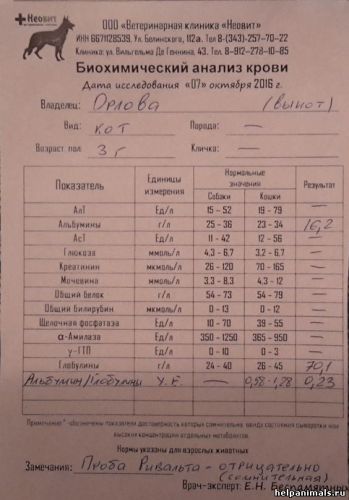 Неовит
ООО «Ветеринарная клиника «Неовит»
ИНН 6671128539, Ул. Белинского, 112а. Тел 8-(343)-257-70-22
Клиника: ул. Вильгельма Де Геннина, 43. Тел. 8-912-278-10-85
Биохимический анализ крови
Дата исследования «07» октября 2016 г.
Владелец: Орлова (выпот)
Вид: кот Порода: —
Возраст пол 3 г Кличка: —
Показатель Единицы измерения Нормальные значения Результат
Собаки Кошки
АлТ Ед/л 15 - 52 19 - 79 —
Альбумины г/л 25 - 36 23 - 34 16,2
АсТ Ед/л 11 - 42 12 - 56 —
Глюкоза ммоль/л 4.3 - 6.7 3.2 - 6.7 —
Креатинин мкмоль/л 26 - 120 70 - 165 —
Мочевина ммоль/л 3.3 - 8.3 4.3 - 12 —
Общий белок г/л 54 - 74 54 - 79 —
Общий билирубин мкмоль/л 0 - 13 0 - 12 —
Щелочная фосфатаза Ед/л 10 - 70 39 - 55 —
α-Амилаза Ед/л 350 - 1250 365 - 950 —
γ-ГТП Ед/л 0 - 10 0 - 3 —
Глобулины г/л 24 - 40 26 - 45 70,1
Альбумин/Глобулины У. Е. — 0,58-1,28 0,23
Примечание * - обозначены показатели достоверность которых сомнительна ввиду состояния сыворотки или
высоких концентраций отдельных метаболитов.
Нормы указаны для взрослых животных
Замечания: Проба Ривальта - отрицательно
(сомнительная)
Врач-эксперт: Е.Н. Беспамятных
helpanimals.ru